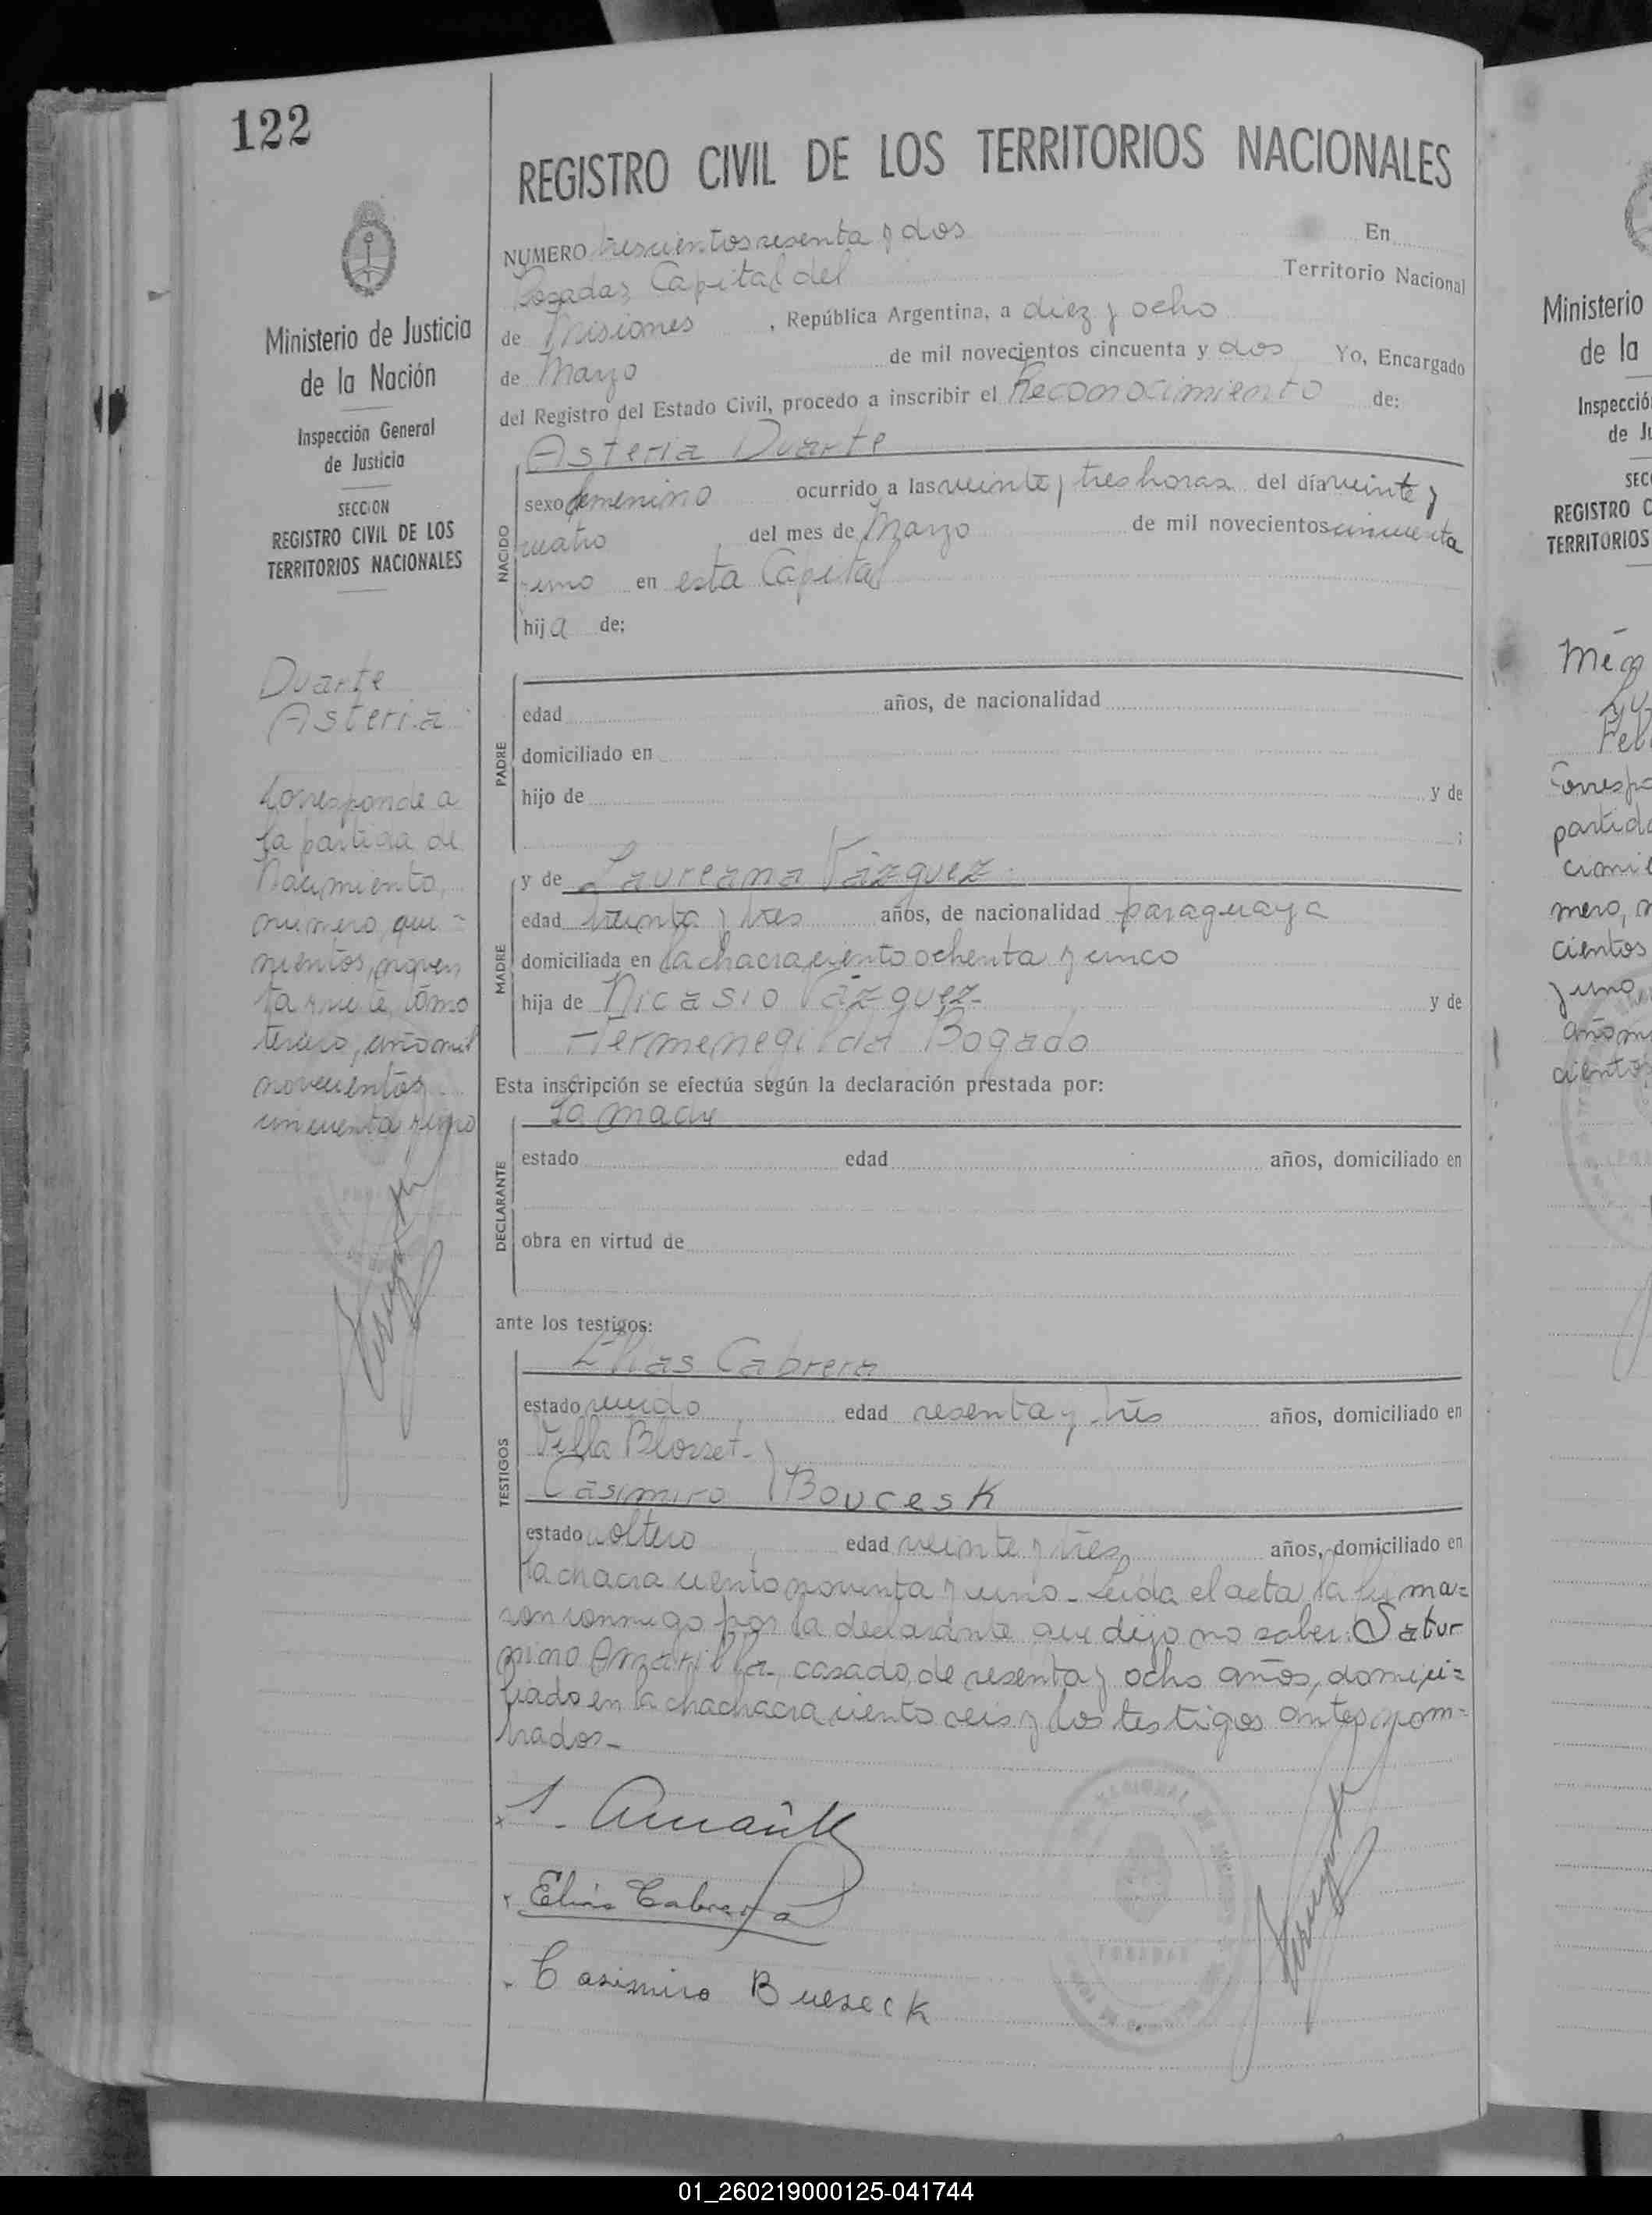 122
REGISTRO CIVIL DE LOS TERRITORIOS NACIONALES
NUMERO trescientos sesenta y dos En
Posadas, Capital del Territorio Nacional
de Misiones, República Argentina, a diez y ocho
de Marzo de mil novecientos cincuenta y dos Yo, Encargado
del Registro del Estado Civil, procedo a inscribir el Reconocimiento de:
Asteria Duarte
NACIDO
sexo femenino ocurrido a las veinte y tres horas del día veinte y
cuatro del mes de Marzo de mil novecientos cincuenta
y uno en esta Capital
hija de:
PADRE
edad años, de nacionalidad
domiciliado en
hijo de y de
;
MADRE
y de Laureana Vázquez.
edad treinta y tres años, de nacionalidad paraguaya
domiciliada en la chacra ciento ochenta y cinco
hija de Nicasio Vázquez- y de
Hermenegilda Bogado
Esta inscripción se efectúa según la declaración prestada por:
La madre
DECLARANTE
estado edad años, domiciliado en
obra en virtud de
ante los testigos:
TESTIGOS
Elias Cabrera
estado viudo edad sesenta y tres años, domiciliado en
Villa Blosset- y
Casimiro Boucesk
estado soltero edad veinte y tres años, domiciliado en
la chacra ciento noventa y uno- Leída el acta, la firma=
ron conmigo por la declarante que dijo no saber: Satur
nino Amarilla, casado, de sesenta y ocho años, domici=
liado en la chachacra ciento seis y los testigos antes nom=
brados-
Elias Cabrera
Casimiro Bueseck
Ministerio de Justicia
de la Nación
Inspección General
de Justicia
SECCION
REGISTRO CIVIL DE LOS
TERRITORIOS NACIONALES
Duarte
Asteria
Corresponde a
la partida de
Nacimiento,
número, qui=
nientos, noven
ta y siete, tomo
tercero, año mil
novecientos
cincuenta y uno
Ministerio
de la
Inspecció
de Ju
SEC
REGISTRO C
TERRITORIOS
Corresp
partid
mero,
cientos
y uno,
año m
ciento
01_260219000125-041744